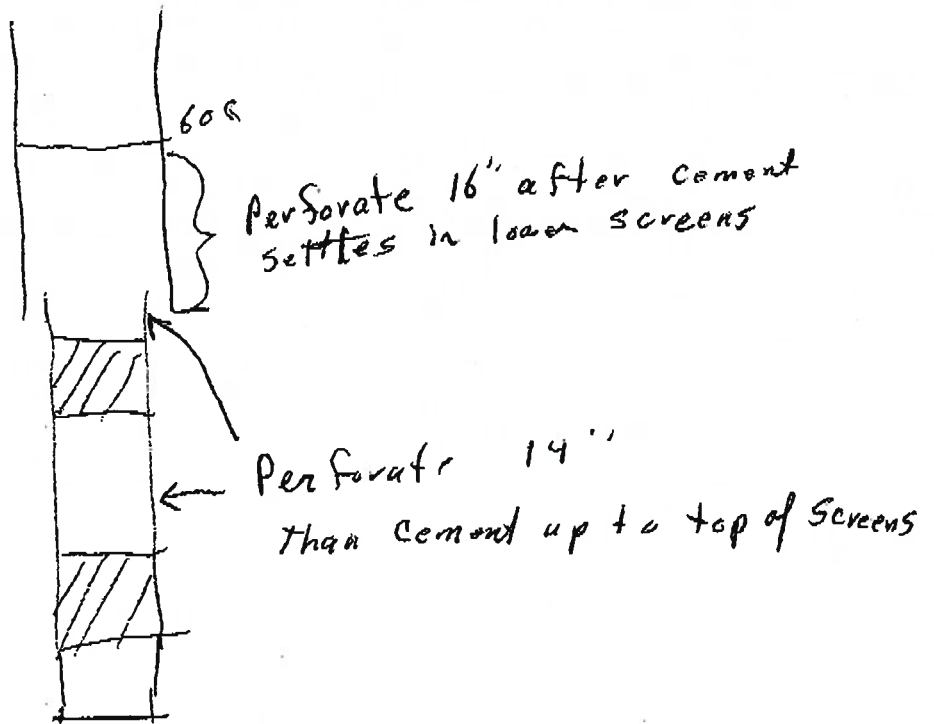 Perforate 16" after cement
settles in lower screens
Perforate 14"
than cement up to top of screens